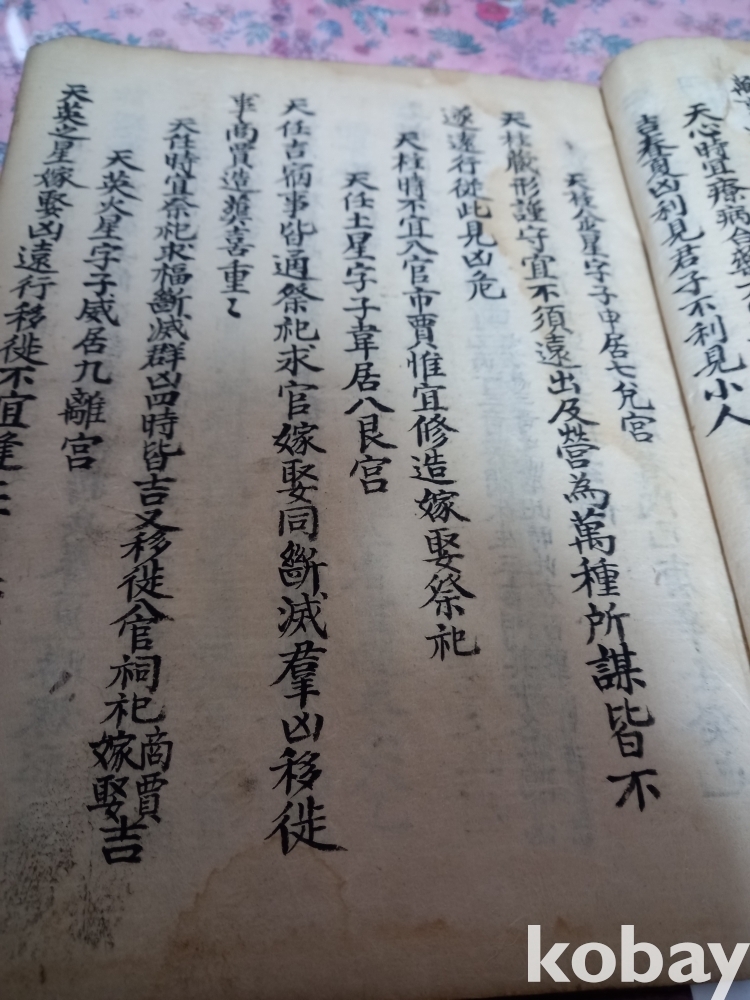 天心時宜療病合藥
吉春夏凶利見君子不利見小人
天柱金星字子申居七兌宮
天柱藏形謹守宜不須遠出及營為萬種所謀皆不
遂遠行從此見凶危
天柱時不宜入官市賈惟宜修造嫁娶祭祀
天任土星字子韋居八艮宮
天任吉宿事皆通祭祀求官嫁娶同斷滅羣凶移徙
事商賈造葬喜重〻
天任時宜祭祀求福斷滅群凶四時皆吉又移徙入官祠祀商賈嫁娶吉
天英火星字子威居九離宮
天英之星嫁娶凶遠行移徙不宜逢
kobay